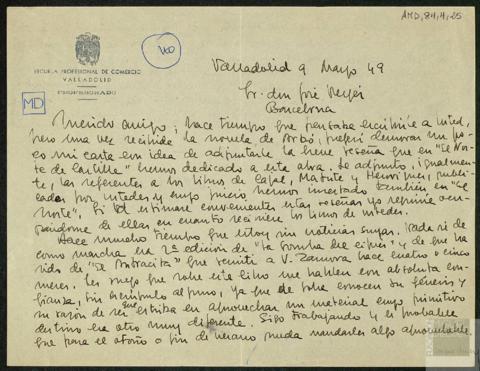 AMD, 84, 4, 25
160
ESCUELA PROFESIONAL DE COMERCIO
VALLADOLID
PROFESORADO
MD
Valladolid 9 Mayo 49
Sr. don José Vergés
Barcelona
Querido amigo; hace tiempo que pensaba escribirle a usted,
pero una vez recibida la novela de Arbó, preferí demorar un po-
co mi carta con idea de adjuntarle la breve reseña que en "El Nor-
te de Castilla" hemos dedicado a esta obra. Le adjunto, igualmen-
te, las referentes a los libros de Cajal, Matute y Henriques, publi-
cados por ustedes y cuyo juicio hemos insertado también en "El
Norte". Si Vd estimare convenientes estas reseñas yo seguiré ocu-
pándome de ellas en cuanto reciba los libros de ustedes.
Hace mucho tiempo que estoy sin noticias suyas. Nada sé de
como marcha la 2ª edición de "La sombra del ciprés" y de que ha
sido de "La Antracita" que remití a V. Zamora hace cuatro o cinco
meses. Les ruego que sobre este libro me hablen con absoluta con-
fianza, sin escrúpulo alguno, ya que de sobra conocen su génesis y
su razón de ser que estriba en aprovechar un material cuyo primitivo
destino era otro muy diferente. Sigo trabajando y es probable
que para el otoño o fin de verano pueda mandarles algo aprovechable.